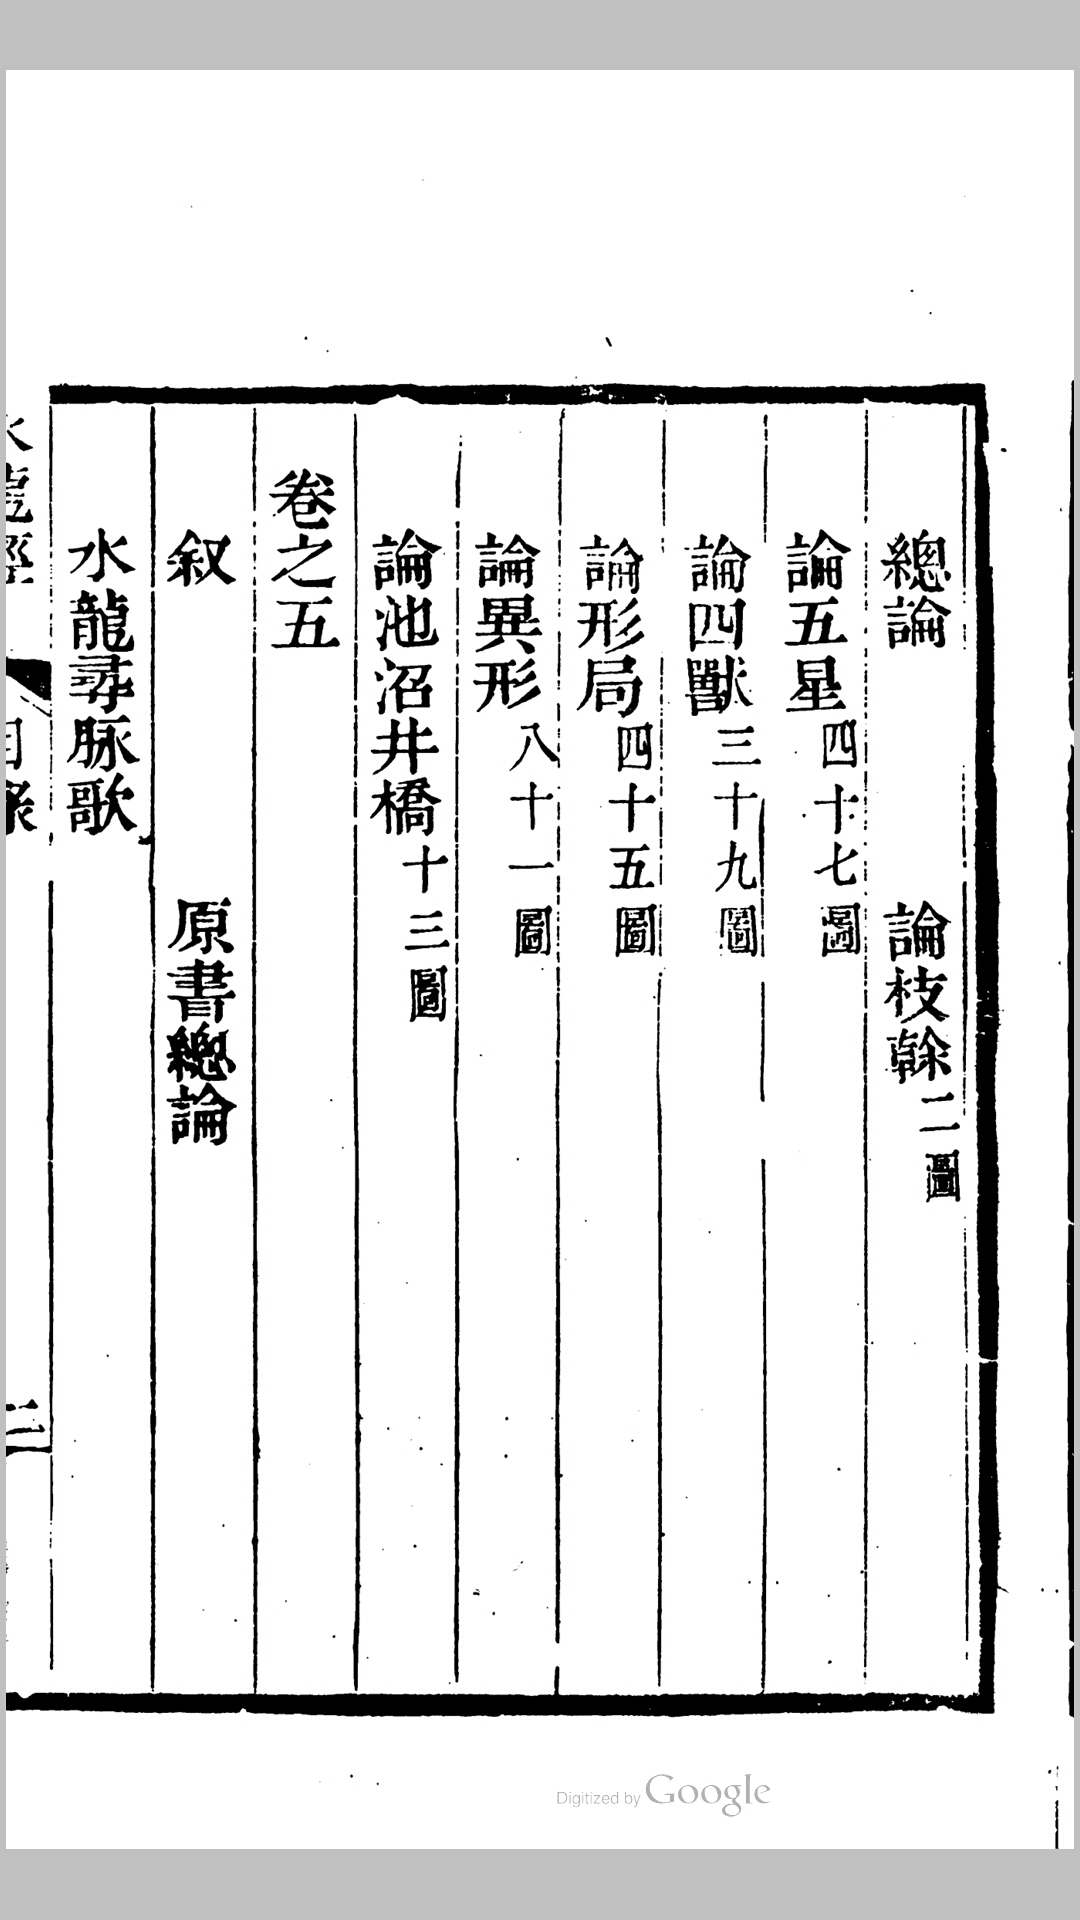 總論　論枝榦二圖
論五星四十七圖
論四獸三十九圖
論形局四十五圖
論異形八十一圖
論池沼井橋十三圖
卷之五
叙　原書總論
水龍尋脉歌
水龍經　目錄　二
Digitized by Google